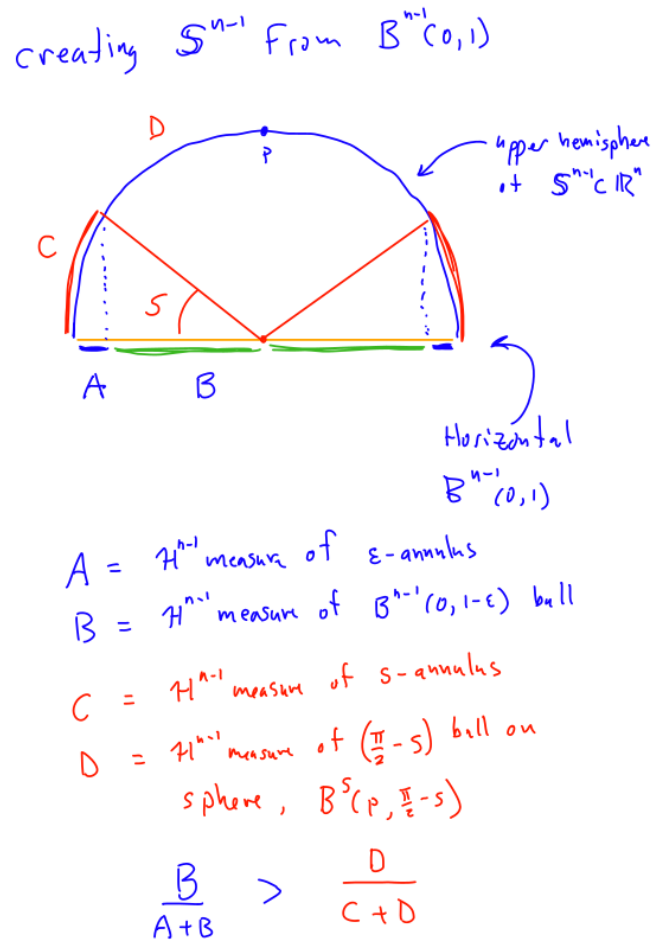 creating 𝕊ⁿ⁻¹ from Bⁿ⁻¹(0,1)
D
P
upper hemisphere
of 𝕊ⁿ⁻¹⊂ℝⁿ
C
S
A
B
Horizontal
Bⁿ⁻¹(0,1)
A = ℋⁿ⁻¹ measure of ε-annulus
B = ℋⁿ⁻¹ measure of Bⁿ⁻¹(0,1-ε) ball
C = ℋⁿ⁻¹ measure of s-annulus
D = ℋⁿ⁻¹ measure of (π/2 - s) ball on
sphere, Bˢ(p, π/2 - s)
B/(A+B) > D/(C+D)